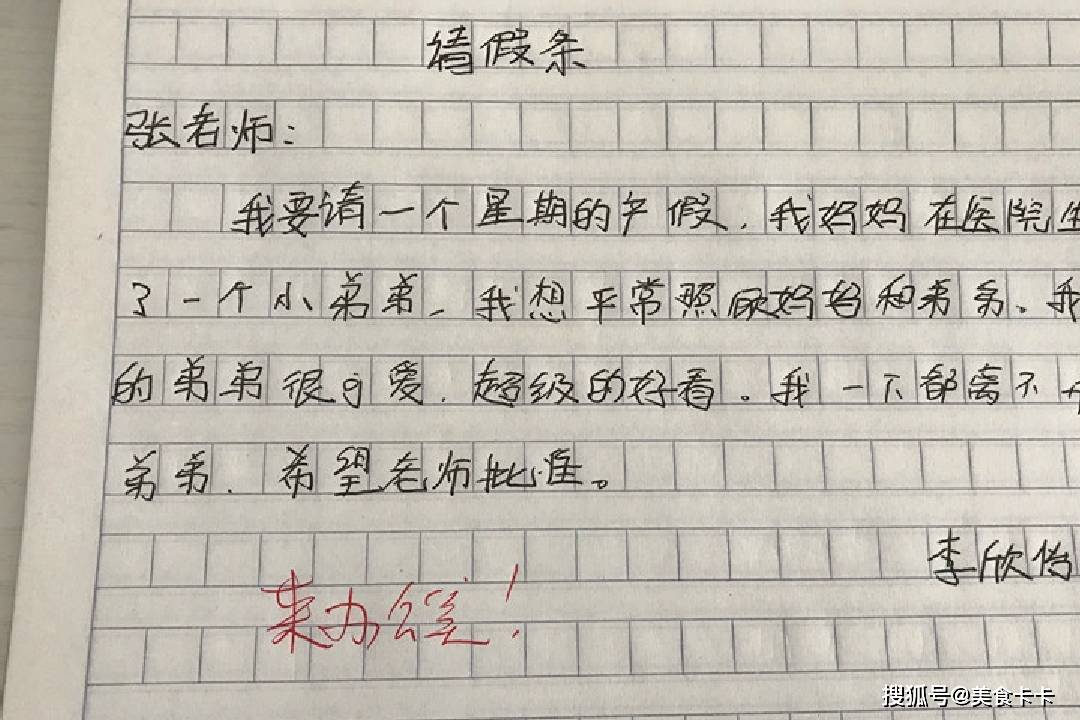 请假条
张老师:
我要请一个星期的产假,我妈妈在医院生
了一个小弟弟,我想平常照顾妈妈和弟弟。我
的弟弟很可爱,超级的好看。我一下都离不开
弟弟,希望老师批准。
李欣怡
来办公室!
搜狐号@美食卡卡